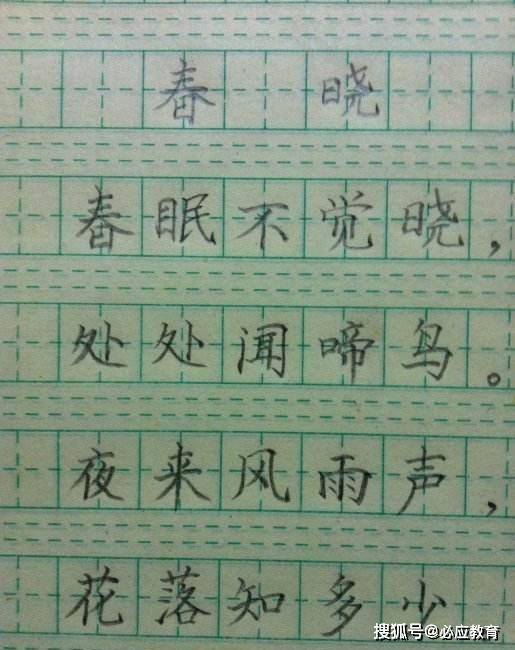 春晓
春眠不觉晓，
处处闻啼鸟。
夜来风雨声，
花落知多少
搜狐号@必应教育